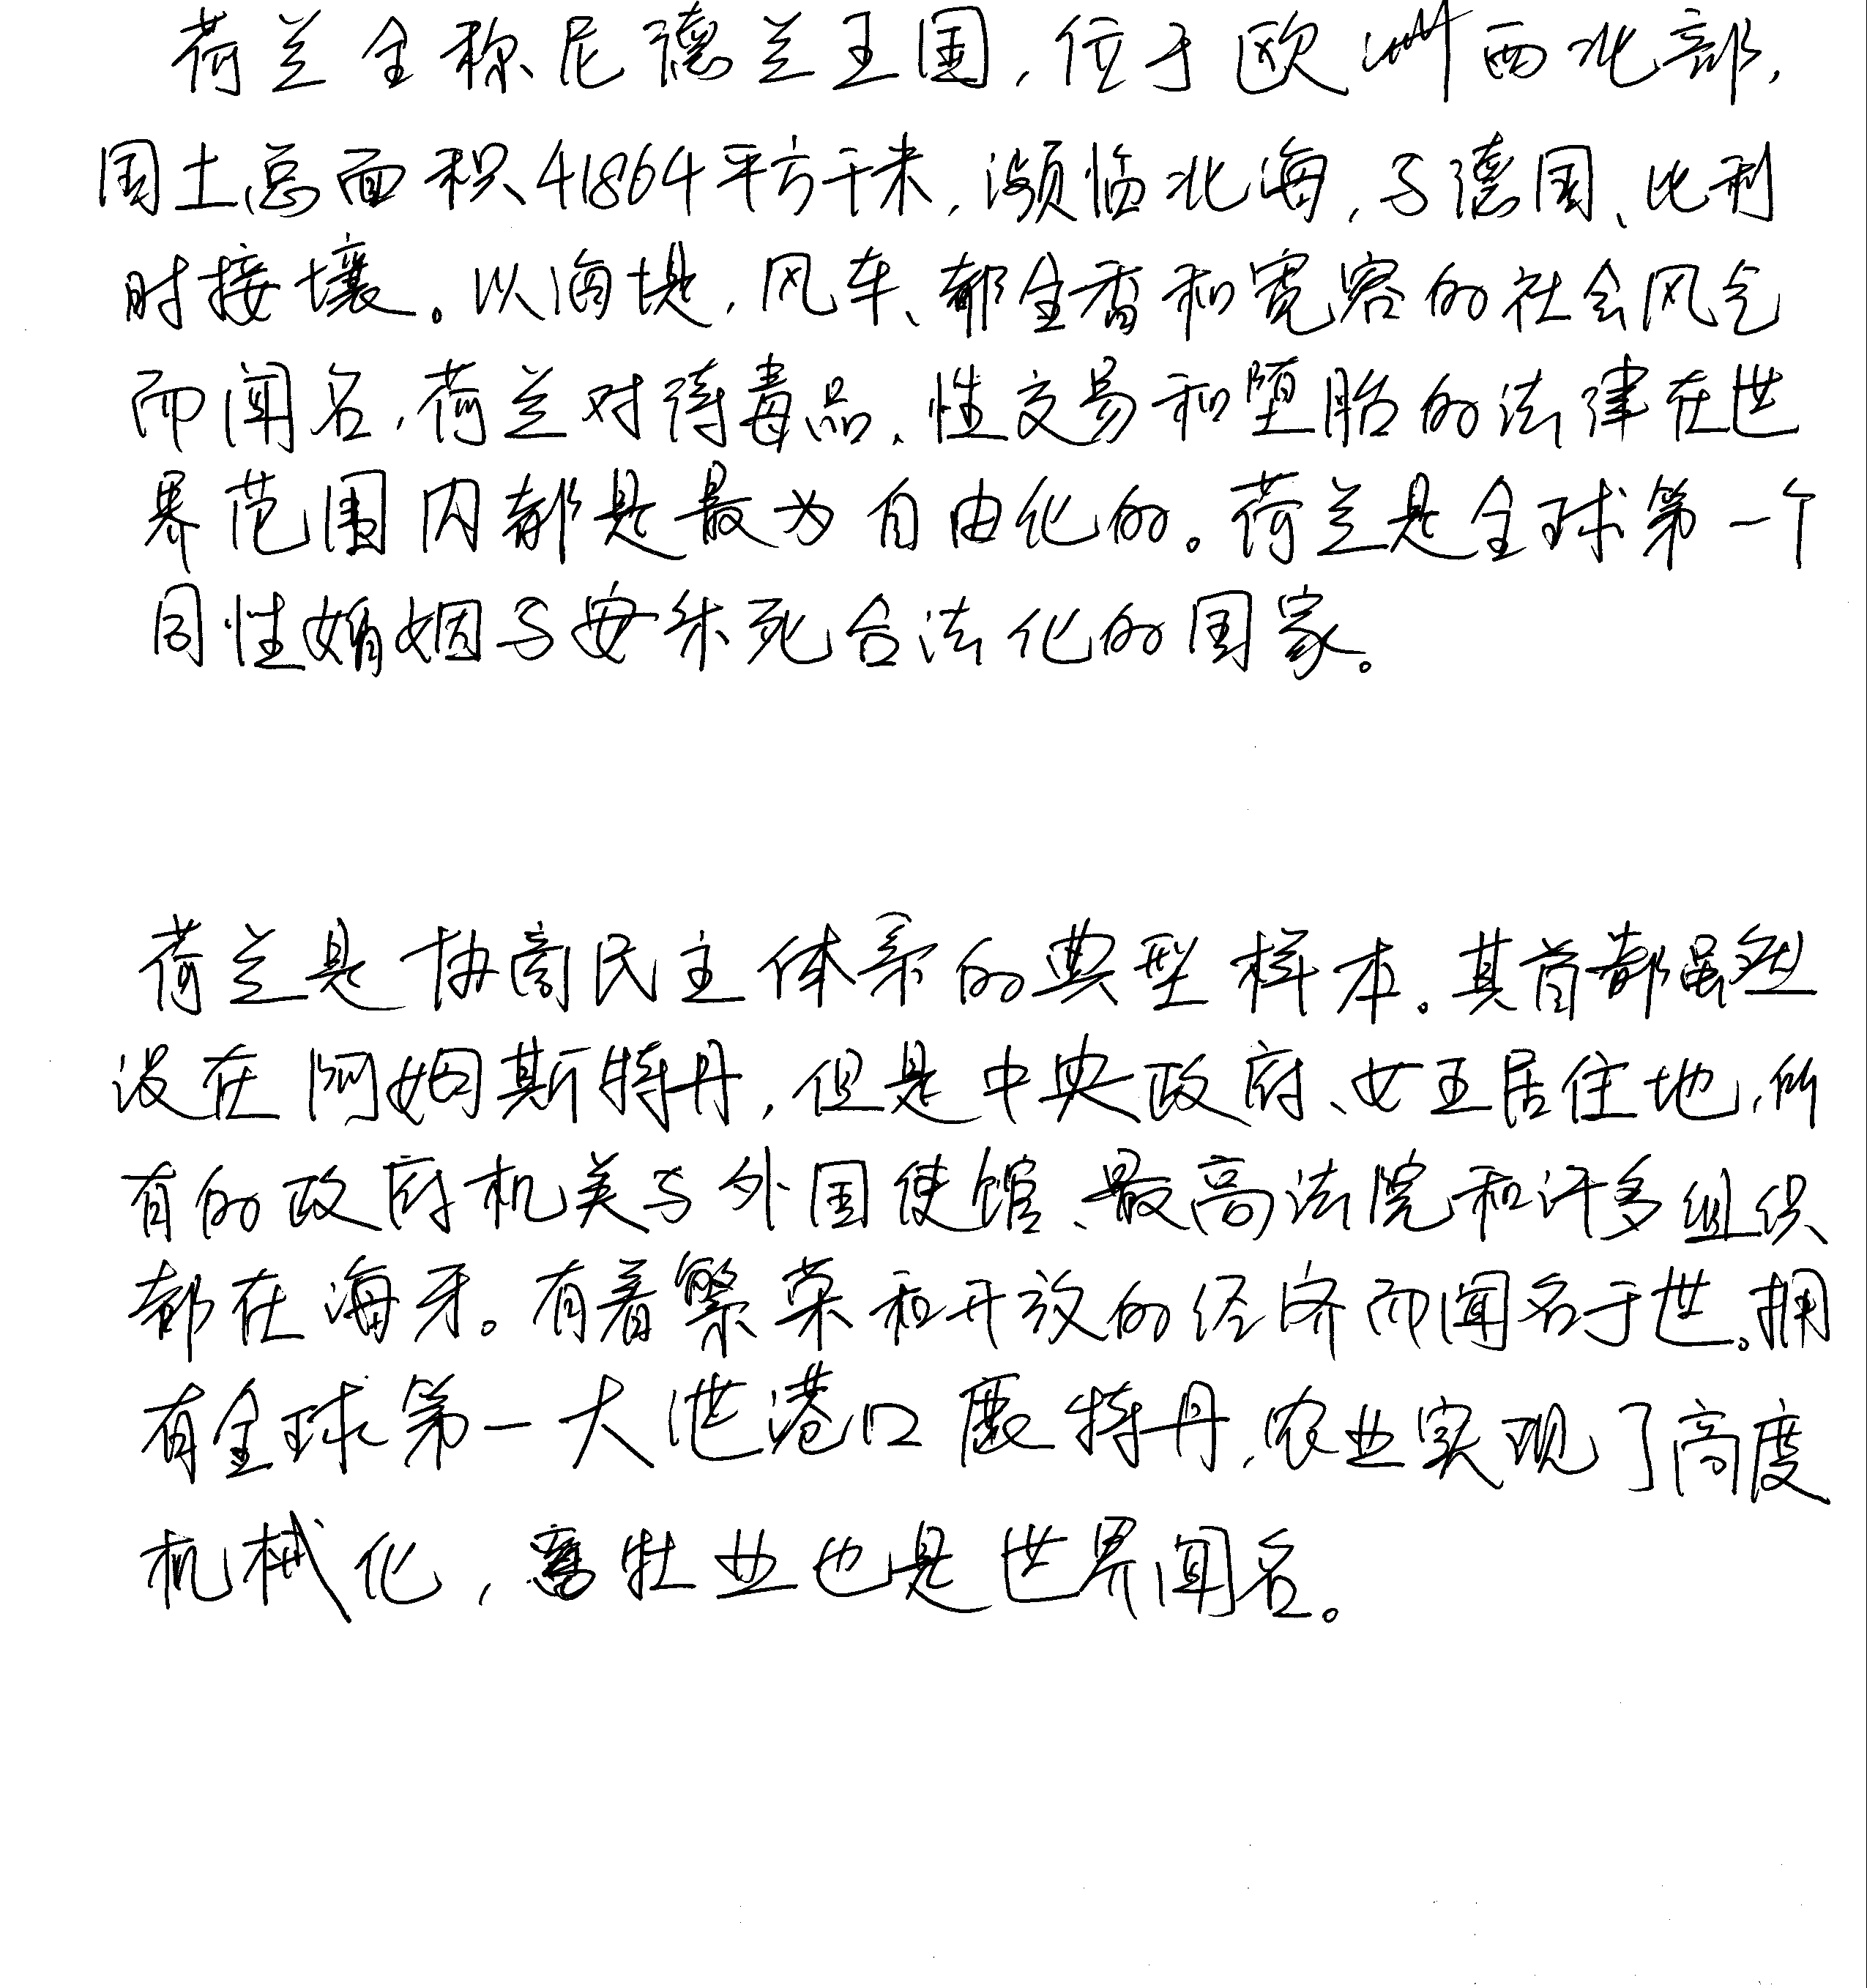 荷兰全称尼德兰王国,位于欧洲西北部,
国土总面积41864平方千米,濒临北海,与德国、比利
时接壤。以海堤,风车、郁金香和宽容的社会风气
而闻名,荷兰对待毒品、性交易和堕胎的法律在世
界范围内都是最为自由化的。荷兰是全球第一个
同性婚姻与安乐死合法化的国家。
荷兰是协商民主体系的典型样本。其首都虽然
设在阿姆斯特丹,但是中央政府、女王居住地,所
有的政府机关与外国使馆、最高法院和许多组织
都在海牙。有着繁荣和开放的经济而闻名于世。拥
有全球第一大港口鹿特丹,农业实现了高度
机械化,畜牧业也是世界闻名。